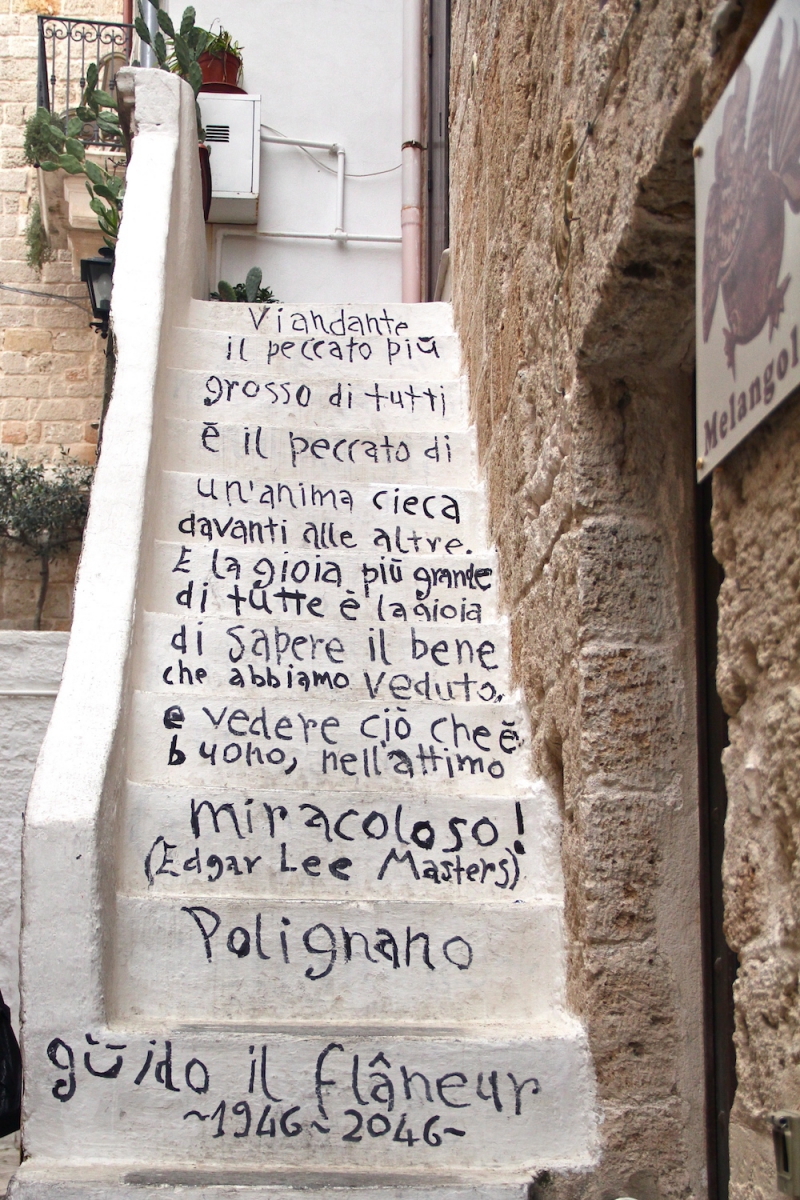 Viandante
il peccato più
grosso di tutti
è il peccato di
un'anima cieca
davanti alle altre.
E la gioia più grande
di tutte è la gioia
di sapere il bene
che abbiamo veduto,
e vedere ciò che è
buono, nell'attimo
miracoloso!
(Edgar Lee Masters)
Polignano
guido il flâneur
~1946~2046~
Melangol